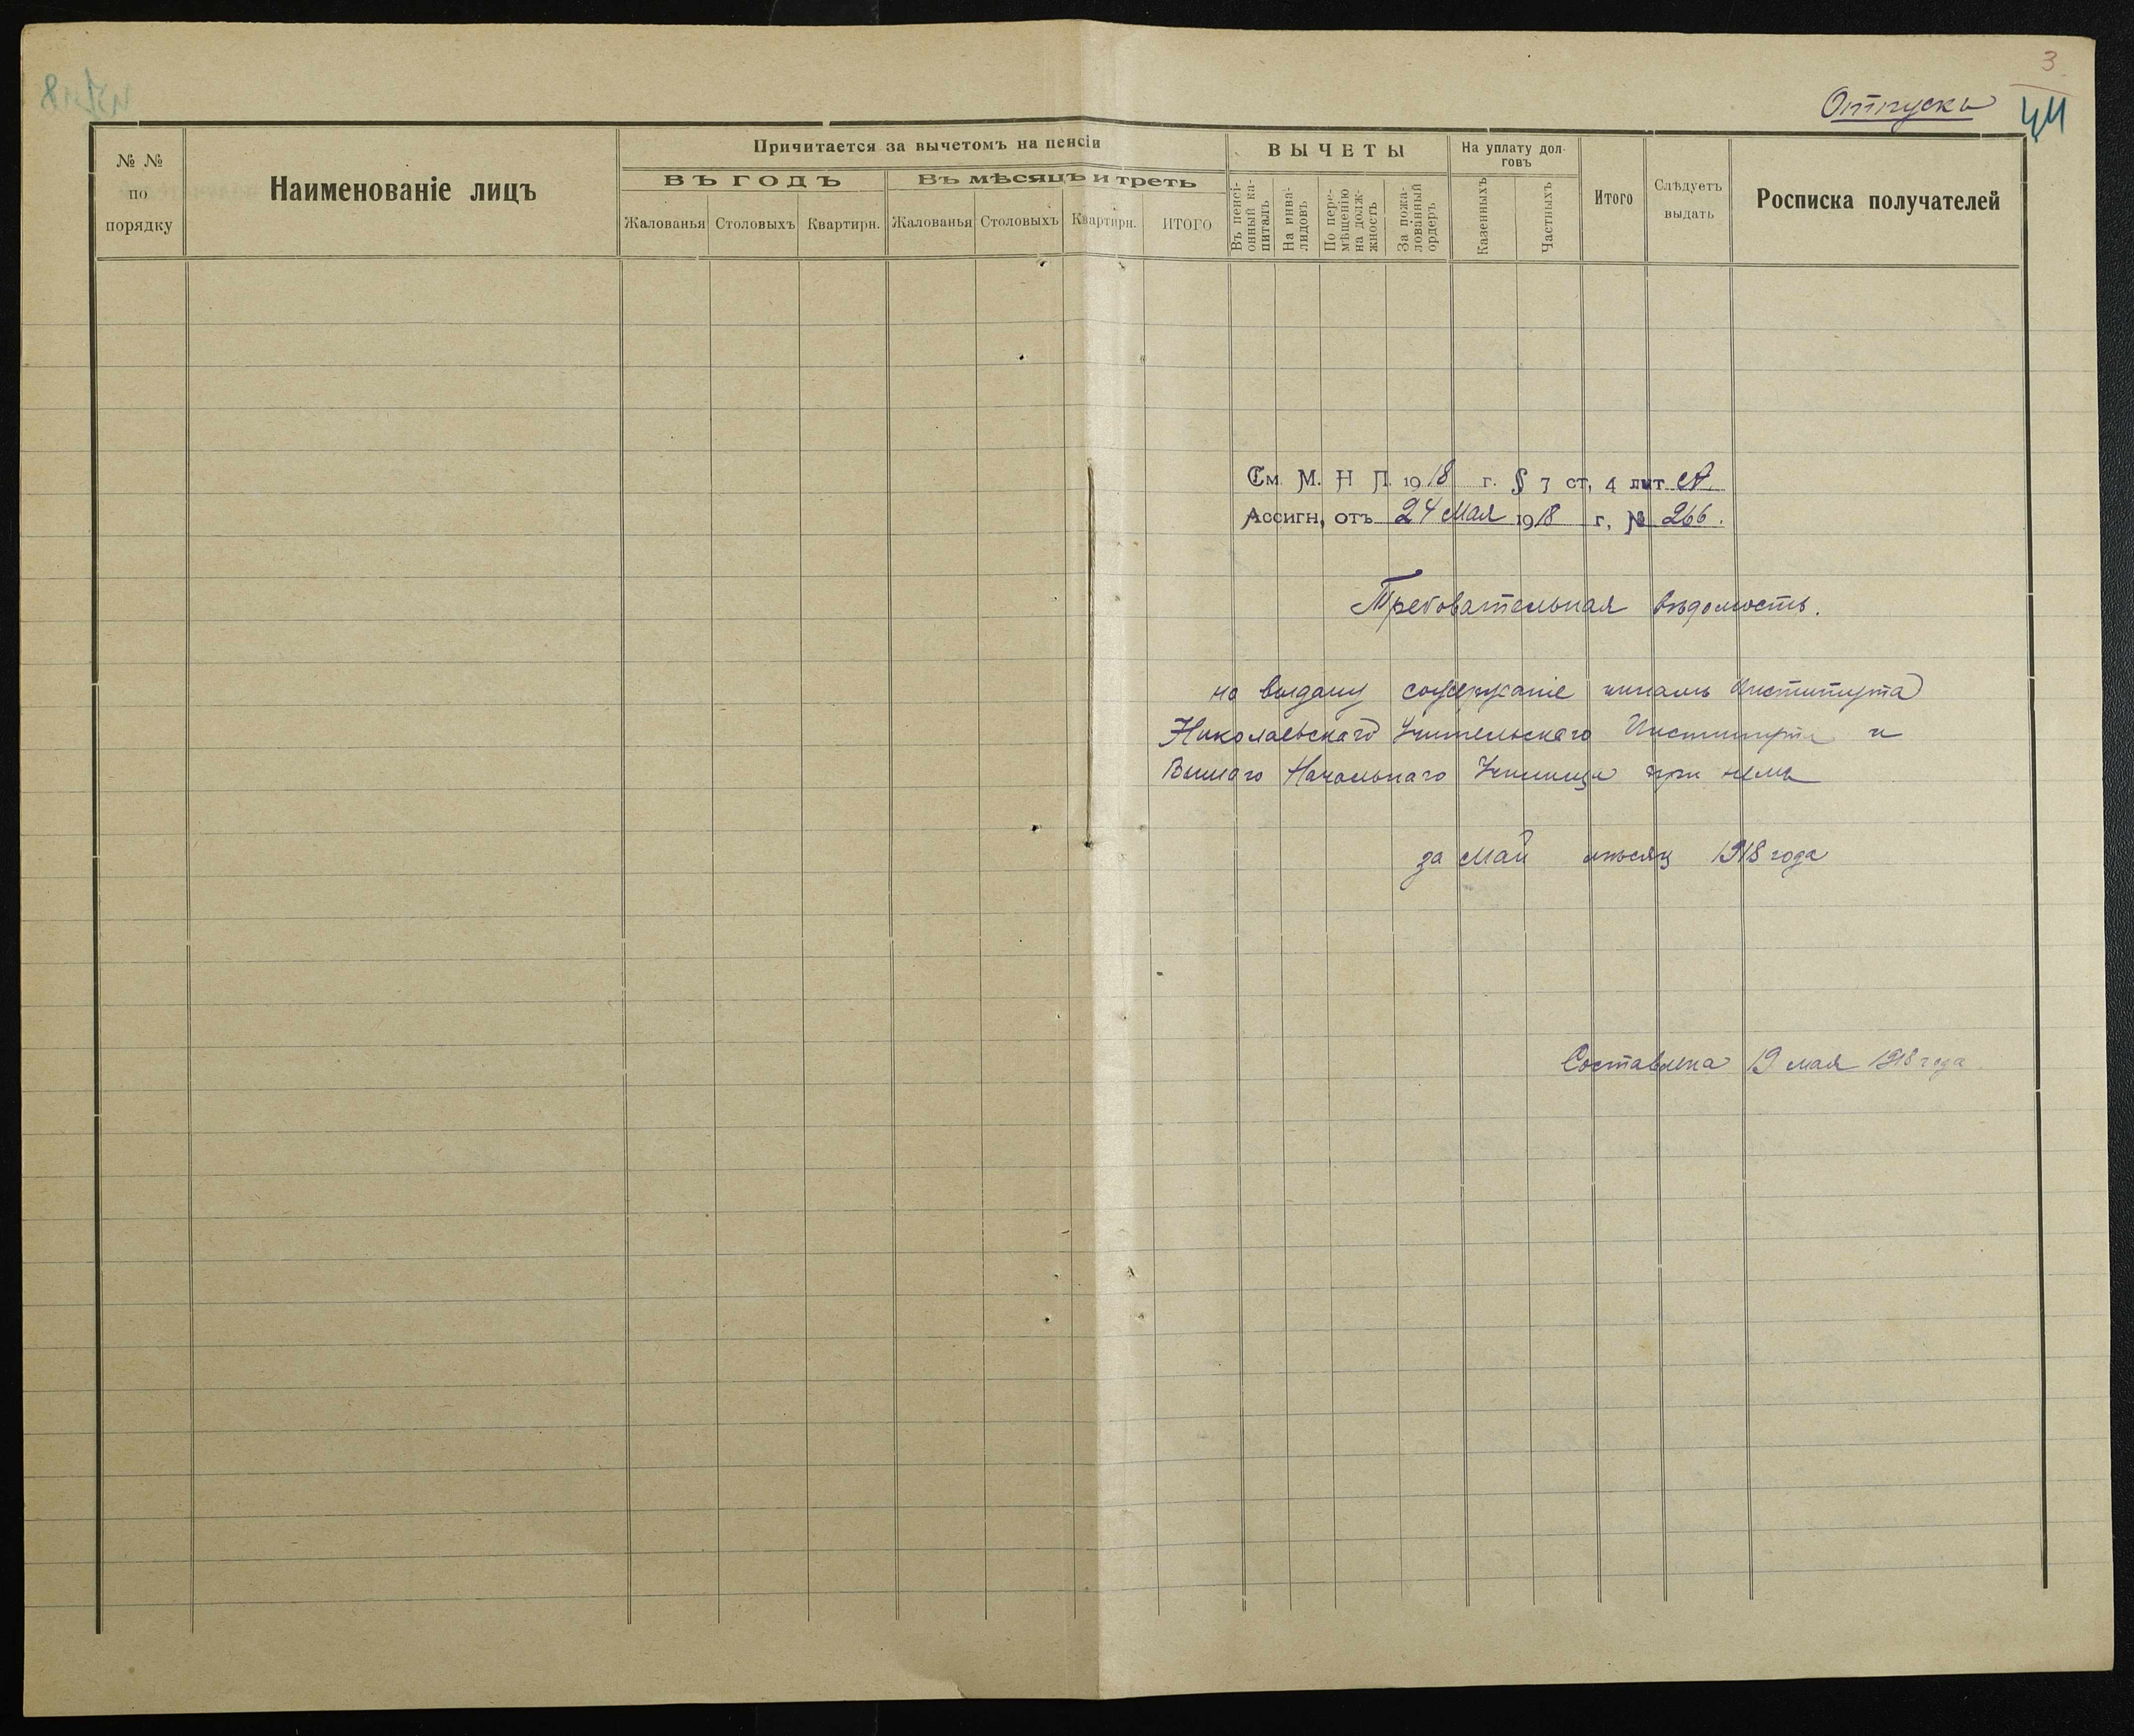 3
Отпускъ
44
№ № по порядку
Наименованіе лицъ
Причитается за вычетомъ на пенсіи
ВЪ ГОДЪ
Въ мѣсяцъ и треть
Жалованья
Столовыхъ
Квартирн.
Жалованья
Столовыхъ
Квартирн.
ИТОГО
ВЫЧЕТЫ
Въ пенсі-
онный ка-
питалъ
На инва-
лидовъ
По пере-
мѣщенію
на долж-
жность
За пожа-
лованный
ордеръ
На уплату дол-
говъ
Казенныхъ
Частныхъ
Итого
Слѣдуетъ
выдать
Росписка получателей
См. М. Н П. 1918 г. § 7 ст, 4 лит А.
Ассигн, отъ 24 Мая 1918 г, № 266.
Требовательная вѣдомость.
на выдачу содержаніе чинамъ Института
Николаевскаго Учительскаго Института и
Высшаго Начальнаго Училища при немъ
за Май мѣсяц 1918 года
Составлена 19 мая 1918 года